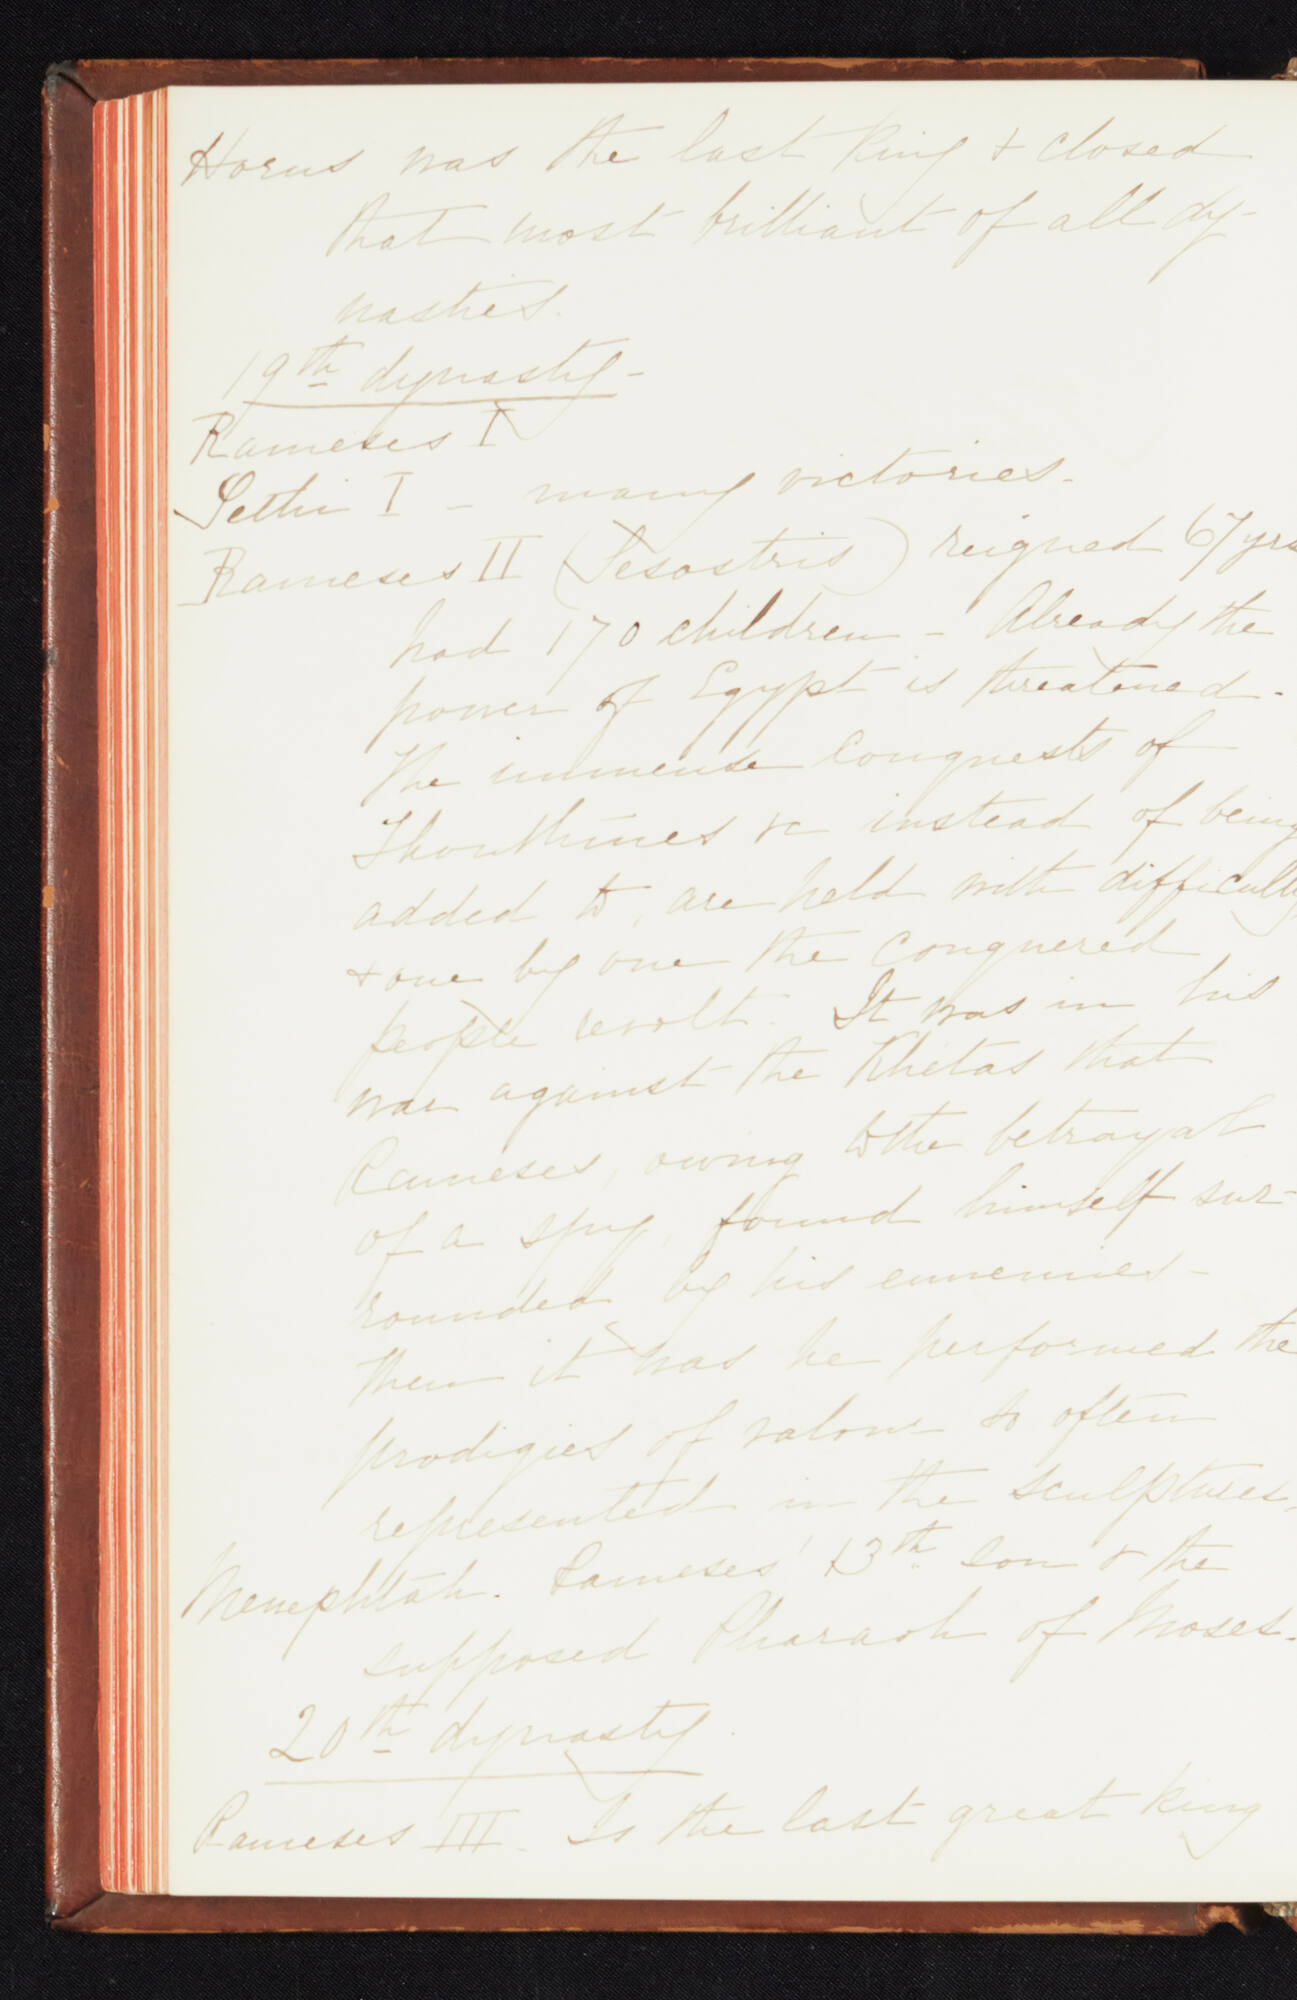 Horus was the last King & closed
that most brilliant of all dy-
nasties.
19th dynasty -
Rameses I
Sethi I - many victories -
Rameses II (Sesostris) reigned 67 yrs
had 170 children - Already the
power of Egypt is threatened -
The immense conquests of
Thouthmes &c instead of being
added to, are held with difficulty
& one by one the conquered
people revolt. It was in his
war against the Khetas that
Rameses, owing to the betrayal
of a spy, found himself sur-
rounded by his ennemies -
Then it was he performed the
prodigies of valour so often
represented in the sculptures.
Menephtah. Rameses' 13th son & the
supposed Pharaoh of Moses.
20th dynasty.
Rameses III. Is the last great king